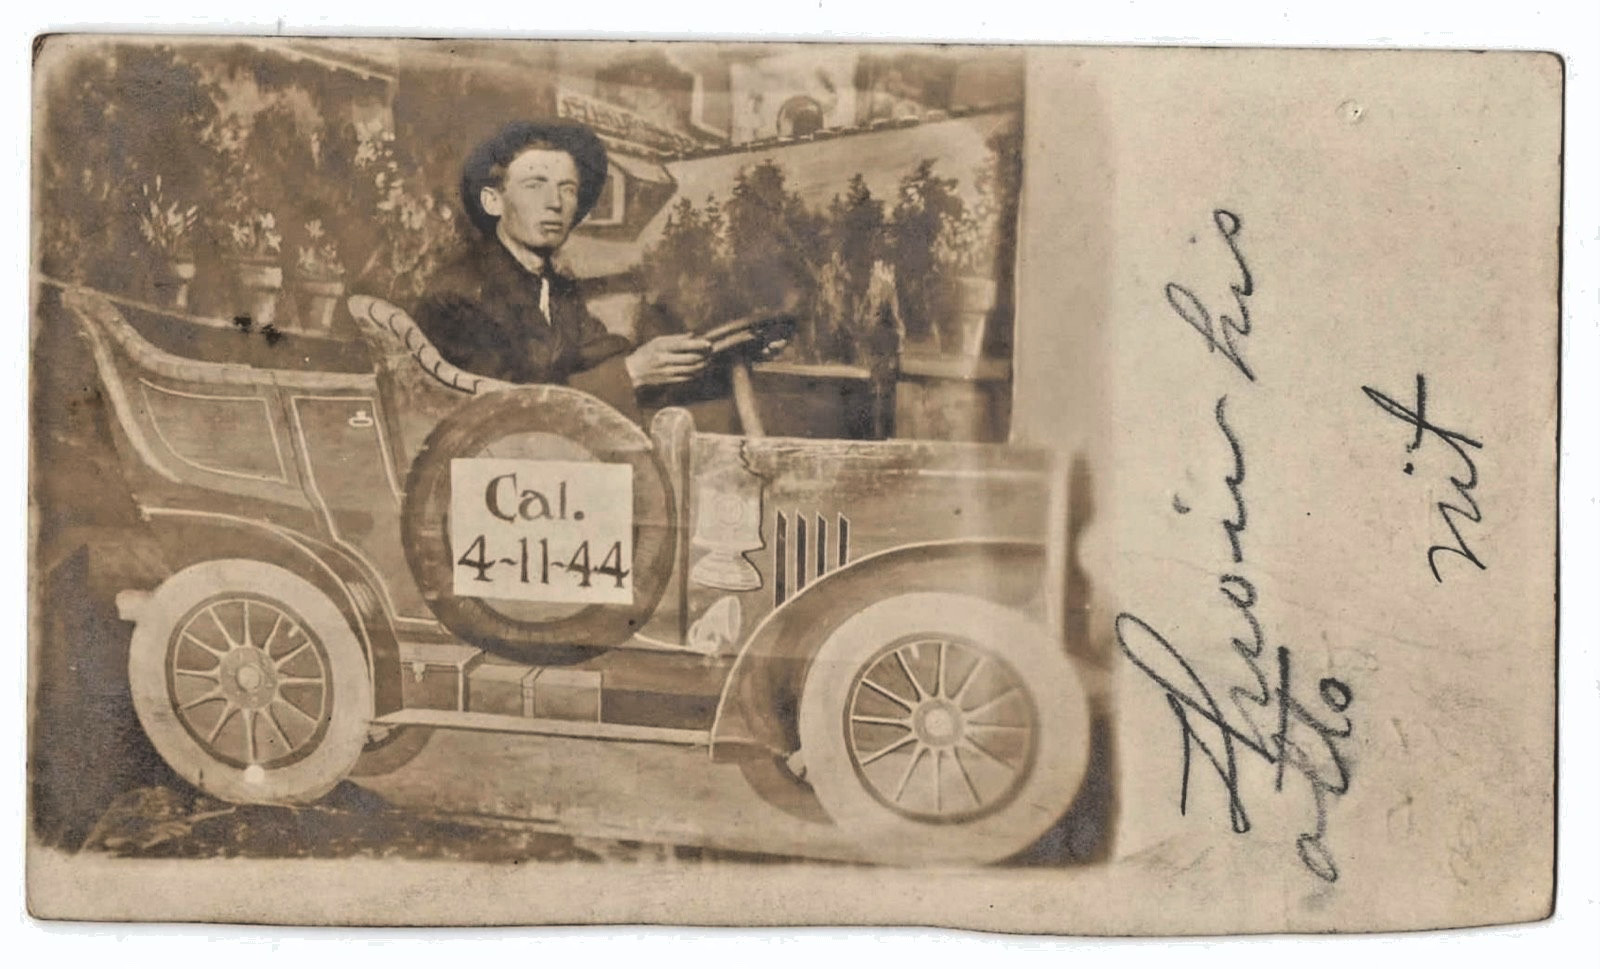 Cal.
4-11-44
Irwin his
atto
nit